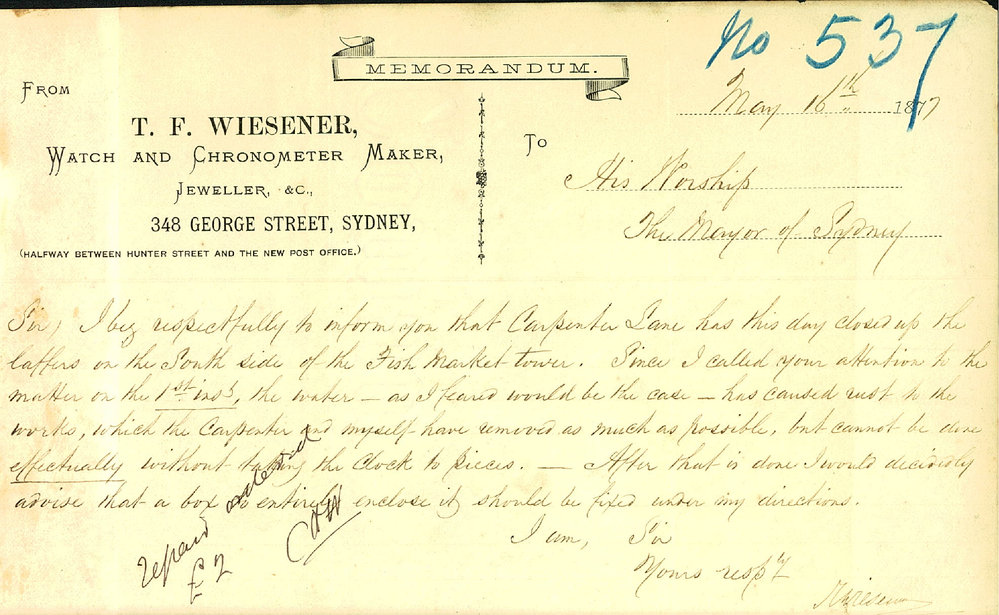 No 537
MEMORANDUM.
May 16th 1877
FROM
T. F. WIESENER,
WATCH AND CHRONOMETER MAKER,
JEWELLER, &C.,
348 GEORGE STREET, SYDNEY,
(HALFWAY BETWEEN HUNTER STREET AND THE NEW POST OFFICE.)
To
His Worship
The Mayor of Sydney
Sir, I beg respectfully to inform you that Carpenter Lane has this day closed up the
laffers on the South side of the Fish Market tower. Since I called your attention to the
matter on the 1st inst, the water — as I feared would be the case — has caused rust to the
works, which the Carpenter and myself have removed as much as possible, but cannot be done
effectually without taking the Clock to pieces. — After that is done I would decidedly
advise that a box to entirely enclose it, should be fixed under my directions.
I am, Sir
Yours respy
TFWiesener
repair ordered
£2